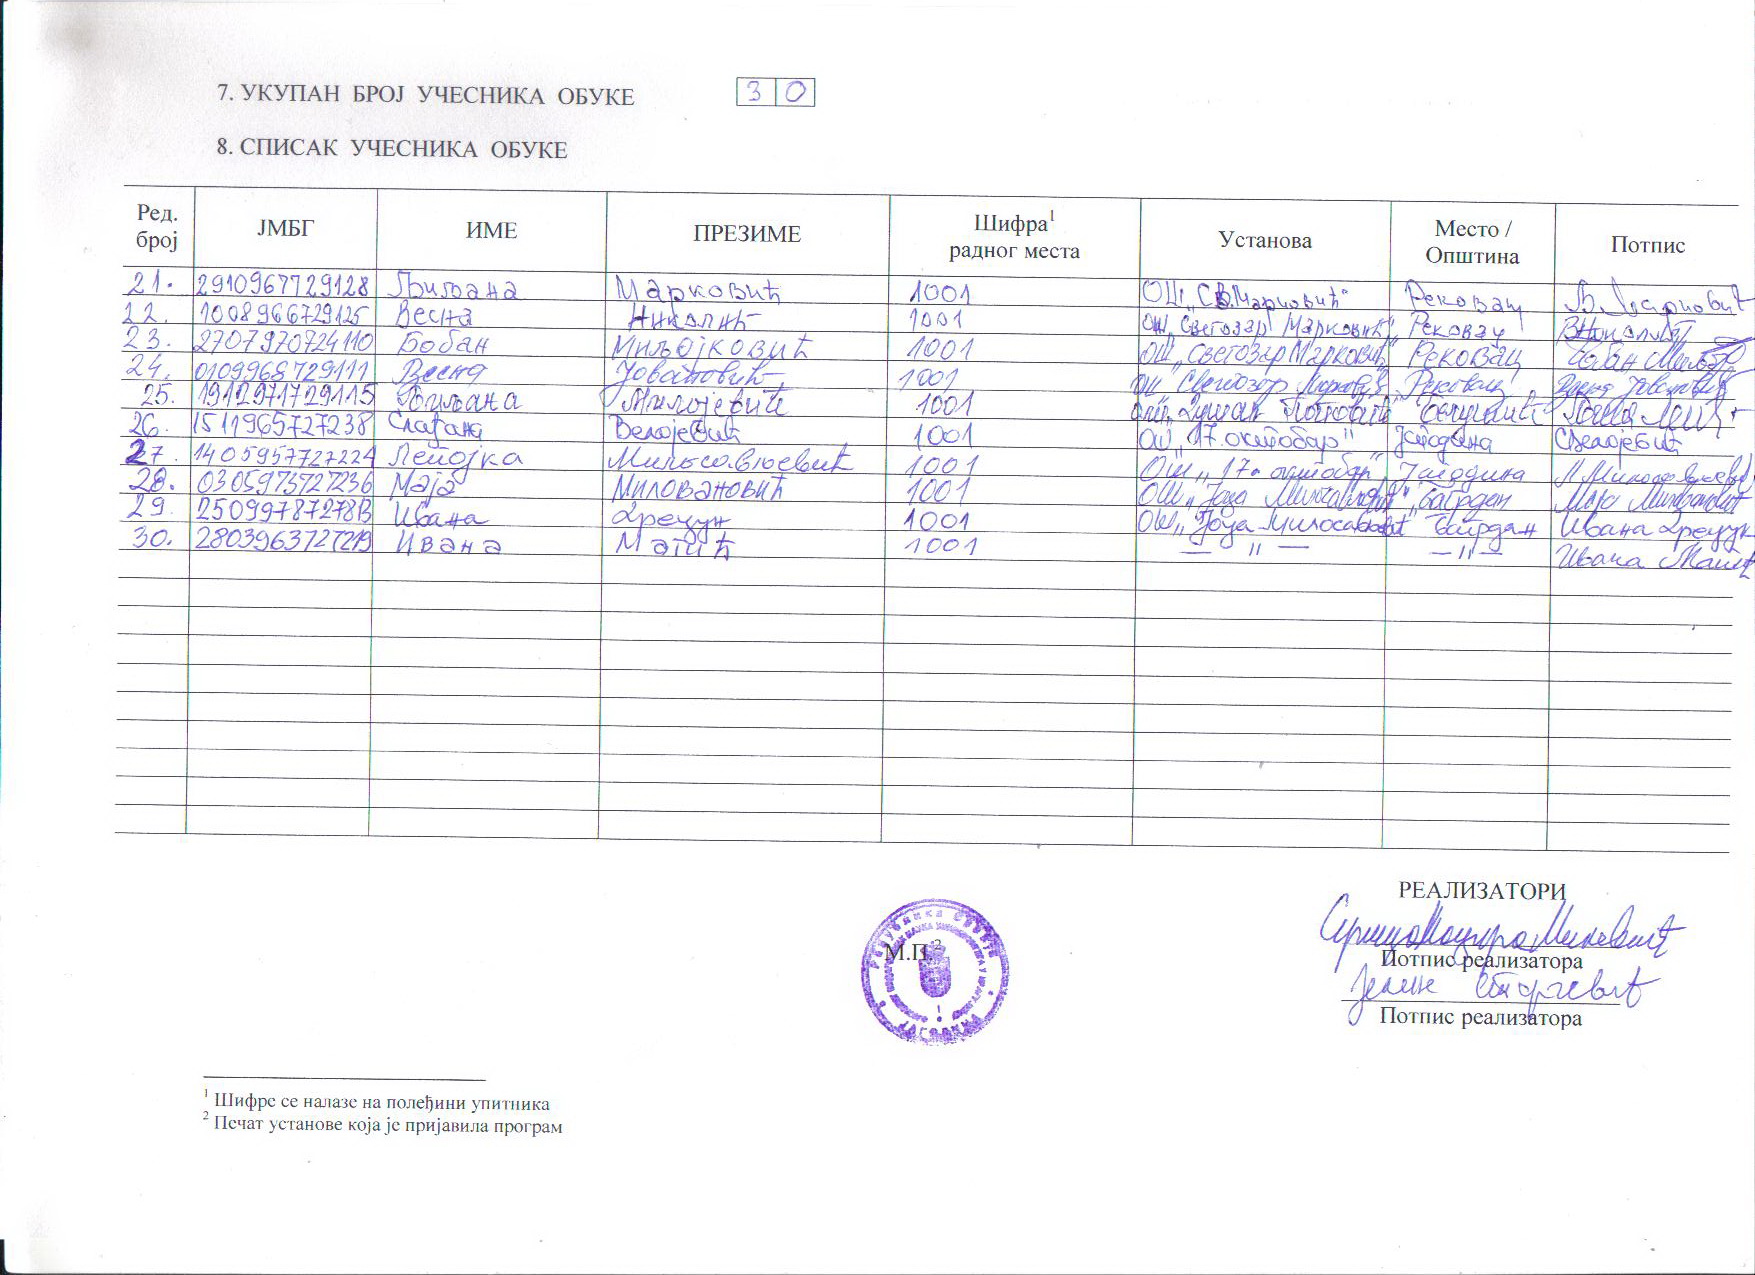 7. УКУПАН БРОЈ УЧЕСНИКА ОБУКЕ 3 0
8. СПИСАК УЧЕСНИКА ОБУКЕ
Ред. број ЈМБГ ИМЕ ПРЕЗИМЕ Шифра1 радног места Установа Место / Општина Потпис
21. 2910967729128 Љиљана Марковић 1001 ОШ „Св. Марковић" Рековац Љ. Марковић
22. 1008966729125 Весна Николић 1001 ОШ „Светозар Марковић" Рековац
23. 2707970724110 Бобан Миљојковић 1001 ОШ „Светозар Марковић" Рековац Бобан
24. 0109968729111 Весна Јовановић 1001 ОШ „Светозар Марковић" Рековац Весна Јовановић
25. 1912971729115 Миљојевић 1001 ОШ „Душан Поповић"
26. 1511965727238 Слађана Велојевић 1001 ОШ „17. октобар" Јагодина СВелојевић
27. 1405957727224 Лепојка Миљосављевић 1001 ОШ „17. октобар" Јагодина
28. 0305975727236 Маја Миловановић 1001 ОШ „Јоца Милосављевић" Багрдан Маја Миловановић
29. Ивана Дрецун 1001 ОШ „Јоца Милосављевић" Багрдан Ивана Дрецун
30. 2803963727219 Ивана Матић 1001 — „ — — „ — Ивана Матић
РЕАЛИЗАТОРИ
М.П.2
Република Србија
ЈАГОДИНА
Потпис реализатора
Потпис реализатора
1 Шифре се налазе на полеђини упитника
2 Печат установе која је пријавила програм